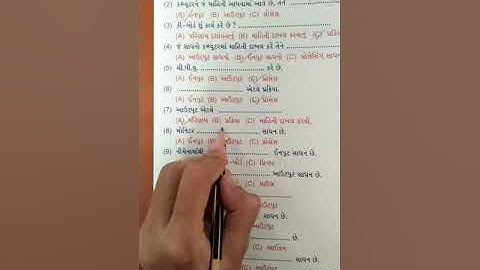 (2) કમ્પ્યુટરને જે માહિતી આપવામાં આવે છે, તેને ............
(A) ઈનપુટ (B) આઉટપુટ (C) પ્રોસેસ
(3) કી-બોર્ડ શું કાર્ય કરે છે ? ............
(A) પરિણામ (B) માહિતી દાખલ કરવાનું
(4) જે સાધનો કમ્પ્યુટરમાં માહિતી દાખલ કરે તેને ............
(A) ઈનપુટ સાધન છે. (B) આઉટપુટ સાધન છે. (C) પ્રોસેસિંગ સાધન
(5) સી.પી.યુ. ............ કરે છે.
(A) ઈનપુટ (B) આઉટપુટ (C) પ્રોસેસ
(6) ............ એટલે પ્રક્રિયા.
(A) ઈનપુટ (B) આઉટપુટ (C) પ્રોસેસ
(7) આઉટપુટ એટલે ............
(A) પરિણામ (B) પ્રક્રિયા (C) માહિતી દાખલ કરવી.
(8) મોનિટર ............ સાધન છે.
(A) ઈનપુટ (B) આઉટપુટ (C) પ્રોસેસ
(9) નીચેનામાંથી ............ ઈનપુટ સાધન છે.
-બોર્ડ (C) પ્રિન્ટર
આઉટપુટ સાધન છે.
(C) માઉસ
આઉટપુટ
છે.
(C)
સાધન છે.
(C) આઉટપુટ